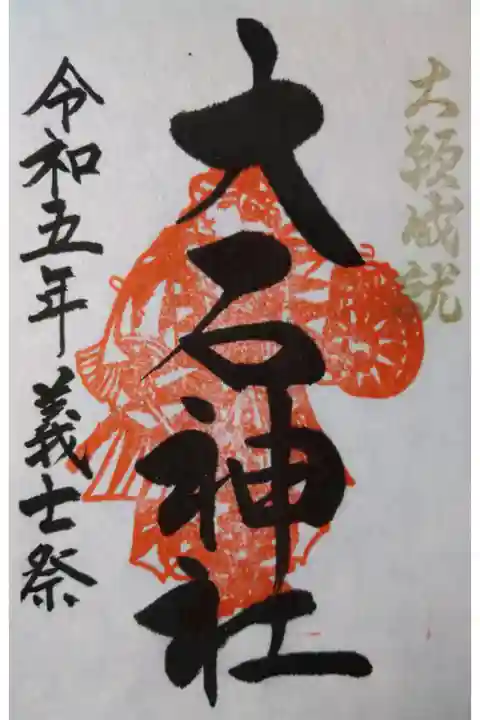 大願成就
大石神社
令和五年 義士祭